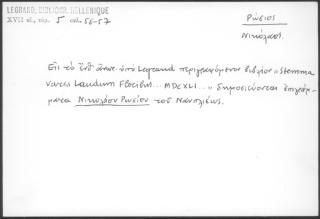 LEGRAND, BIBLIOGR. HELLENIQUE
XVII αἰ., τόμ. 5 σελ. 56-57
Ρώσιος
Νικόλαος.
Εἰς τὸ ὑπὸ Legrand περιγραφόμενον βιβλίον "Stemma
Laudum ... MDCXLI... " δημοσιεύονται ἐπιγράμ-
ματα Νικολάου Ρωσίου τοῦ Ναυπλιέως.